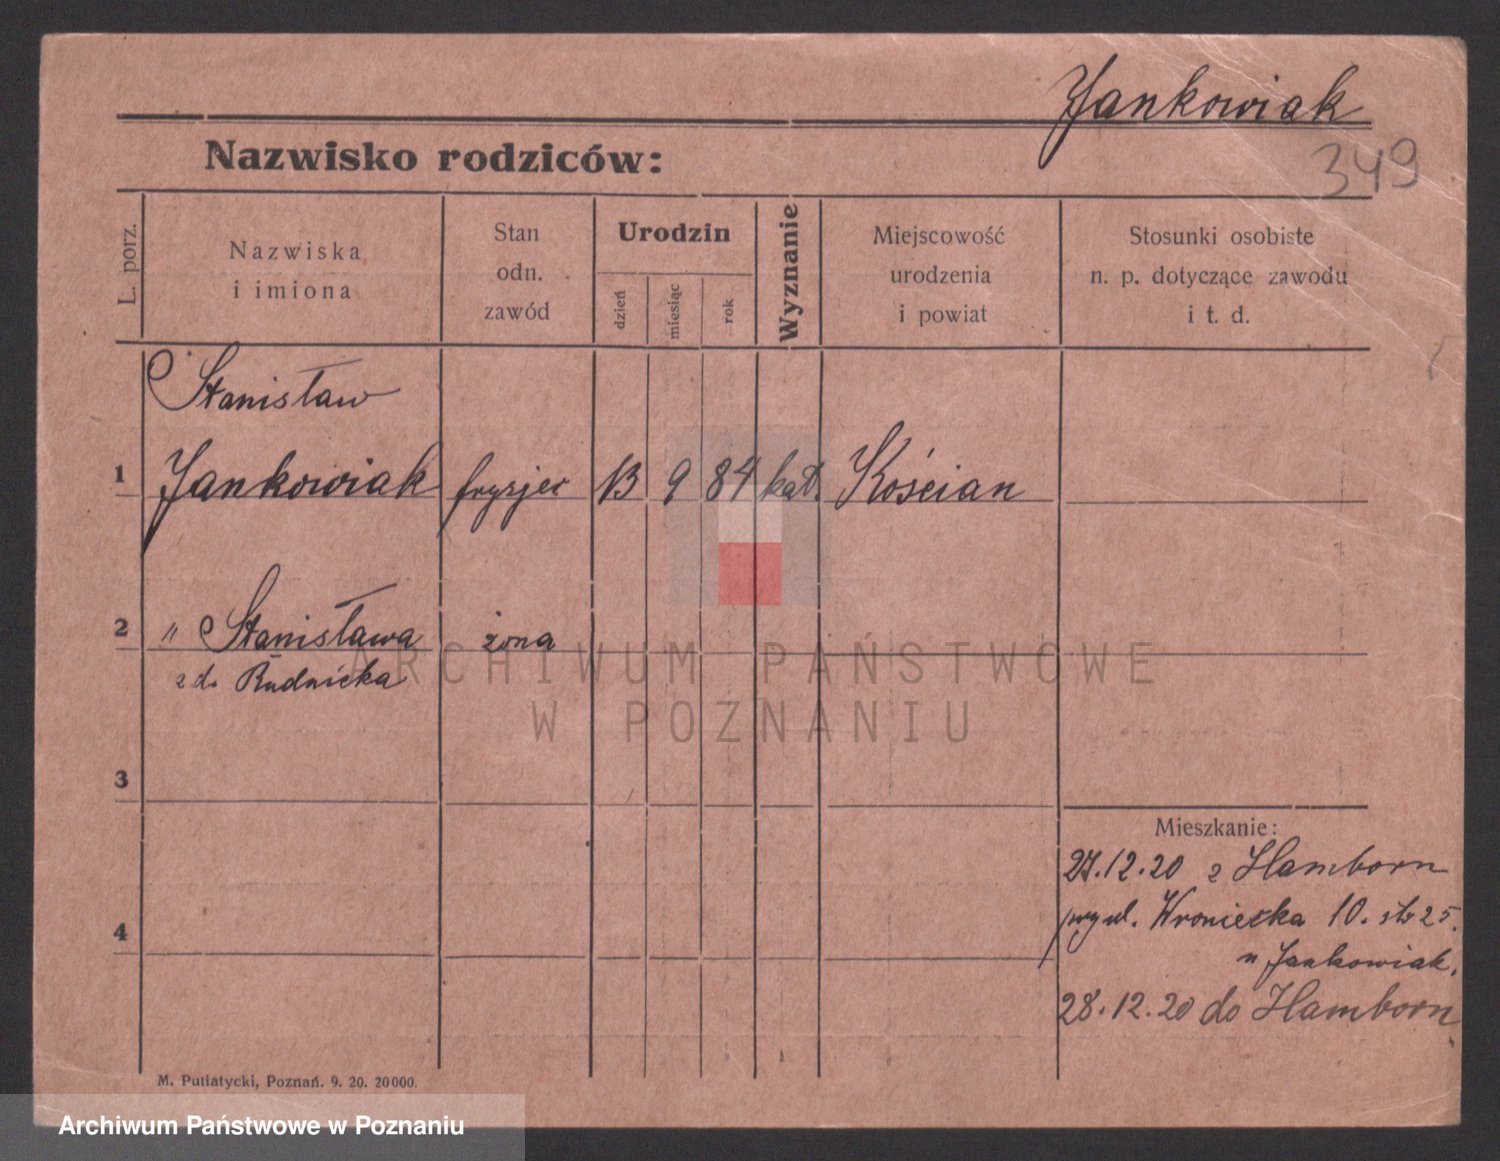 Jankowiak
Nazwisko rodziców:
349
L. porz.
Nazwiska
i imiona
Stan
odn.
zawód
Urodzin
dzień
miesiąc
rok
Wyznanie
Miejscowość
urodzenia
i powiat
Stosunki osobiste
n. p. dotyczące zawodu
i t. d.
Stanisław
1 Jankowiak fryzjer 13 9 84 kat. Kościan
2 " Stanisława żona
z d. Rudnicka
3
4
Mieszkanie:
27.12.20 z Hamborn
przy ul. Wroniecka 10. str 25.
u Jankowiak.
28.12.20 do Hamborn
M. Putiatycki, Poznań. 9. 20. 20000.
ARCHIWUM PAŃSTWOWE
W POZNANIU
Archiwum Państwowe w Poznaniu